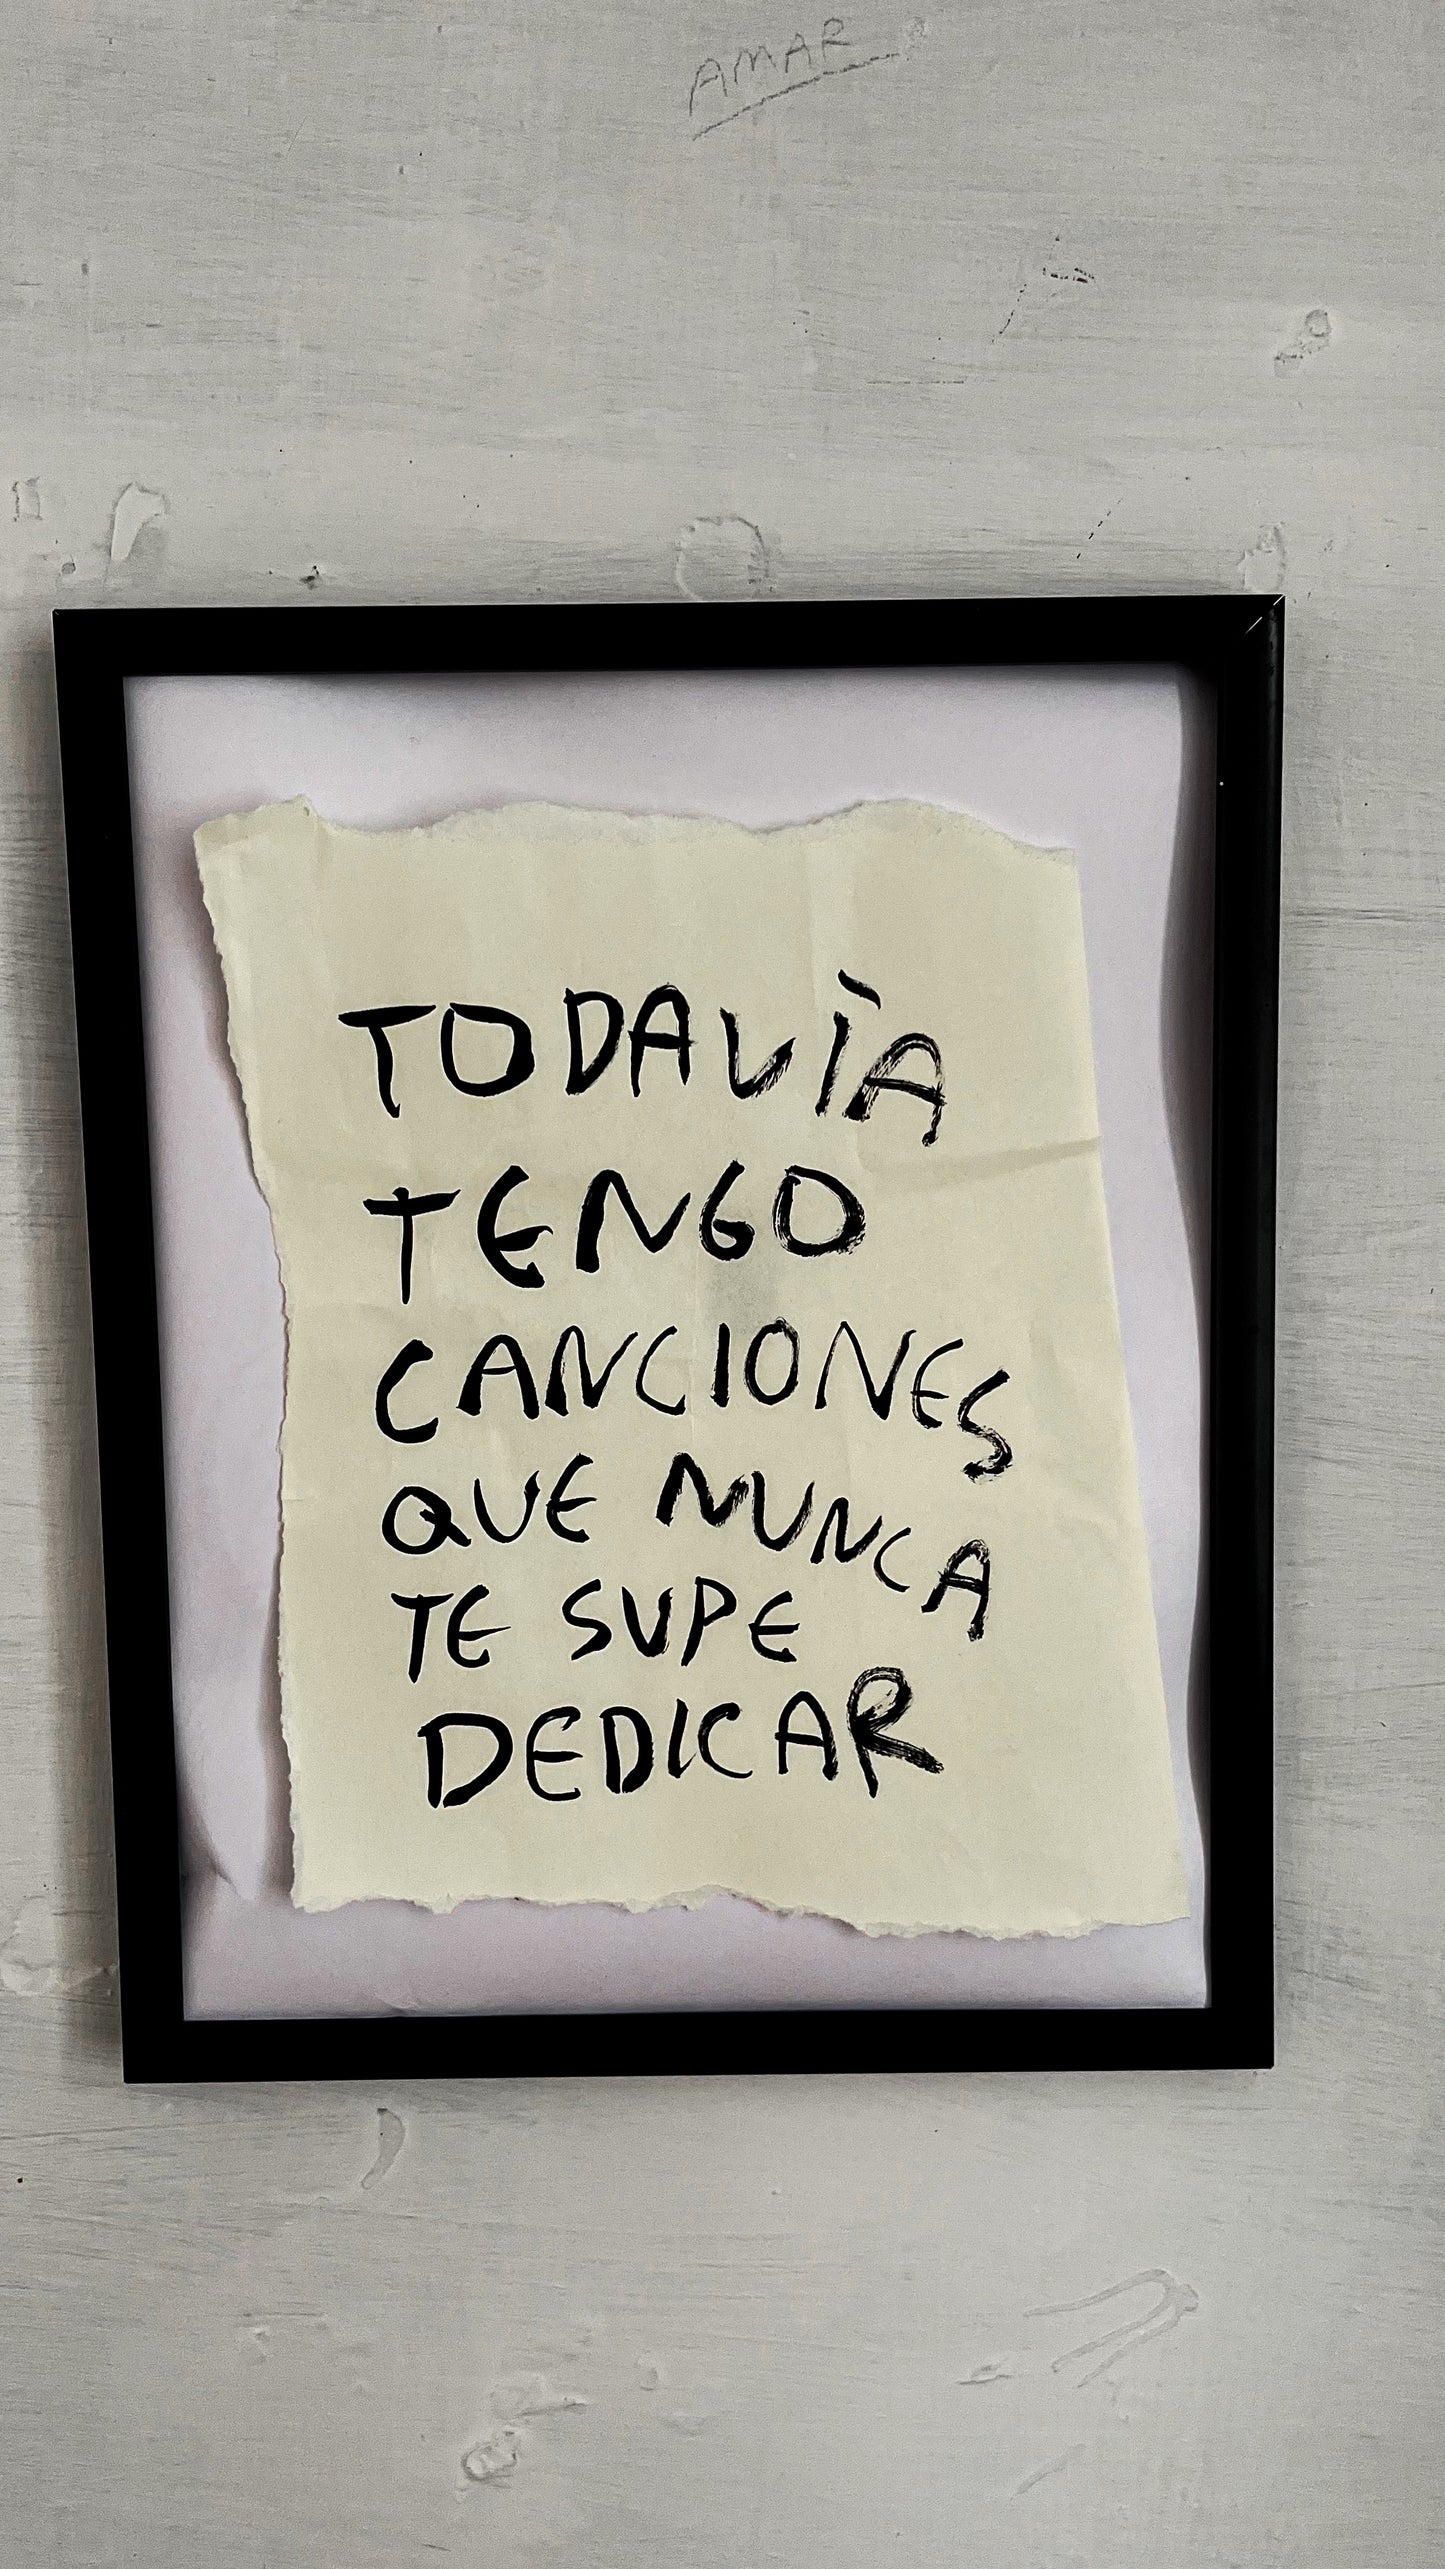 AMAR
TODAVÌA
TENGO
CANCIONES
QUE NUNCA
TE SUPE
DEDICAR